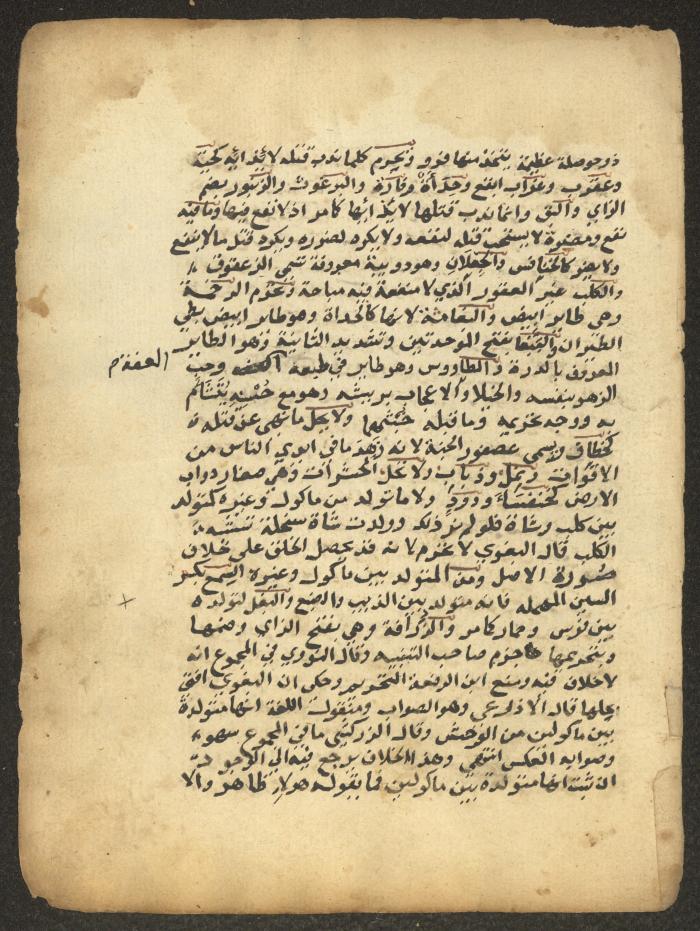 ذو حوصلة عظيمة يتخذ منها فرو ويحرم كلما ندب قتله لايذائه كحية
وعقرب وغراب ابقع وحدأة وفارة والبرغوث والزنبور بضم
الزاي والبق وانما ندب قتلها لايذائها كما مر اذ لا نفع فيها وما فيه
نفع ومضرة لا يستحب قتله لنفعه ولا يكره لضرره ويكره قتل ما لا ينفع
ولا يضر كالخنافس والجعلان وهو دويبة معروفة تسمى الزعقوق
والكلب غير العقور الذي لا منفعة فيه مباحة وتحرم الرخمة
وهي طاير ابيض والبغاثة لانها كالحداة وهو طاير ابيض بطي
الطيران والببغا بفتح الموحدتين وتشديد الثانية وهو الطاير
المعروف بالدرة والطاووس وهو طاير في طبعه العفة وحب
الزهو بنفسه والخيلا والاعجاب بريشه وهو مع حسنه يتشام
به ووجه تحريمه وما قبله خبثهما ولا يحل ما نهي عن قتله
كخطاف ويسمى عصفور الجنة لانه زهد ما في ايدي الناس من
الاقوات ونمل وذباب ولا تحل الحشرات وهي صغار دواب
الارض كخنفساء ودود ولا ما تولد من ماكول وغيره كمتولد
بين كلب وشاة فلو لم نر ذلك وولدت شاة سخلة تشبه
الكلب قال البغوي لا تحرم لانه قد يحصل الخلق على خلاف
صورة الاصل ومن المتولد بين ماكول وغيره السمع بكسر
السين المهمله فانه متولد بين الذيب والضبع والبغل لتولده
بين فرس وحمار كما مر والزرافة وهي بفتح الزاي وضمها
وبتحريمها جزم صاحب التنبيه وقال النووي في المجموع انه
لا خلاف فيه ومنع ابن الرفعة التحريم وحكى ان البغوي افتى
بحلها قال الاذرعي وهو الصواب ومنقول اللغة انها متولدة
بين ماكولين من الوحش وقال الزركشي ما في المجموع سهو
وصوابه العكس انتهى وهذا الخلاف يرجع فيه الى الوجود
ان ثبت انها متولدة بين ماكولين فما يقوله هولاء ظاهر والا
العفة م